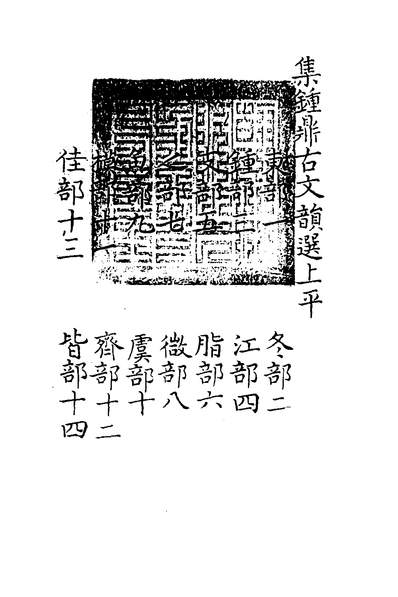 集鍾鼎古文韻選上平
東部一 冬部二
鍾部三 江部四
支部五 脂部六
之部七 微部八
魚部九 虞部十
模部十一 齊部十二
佳部十三 皆部十四